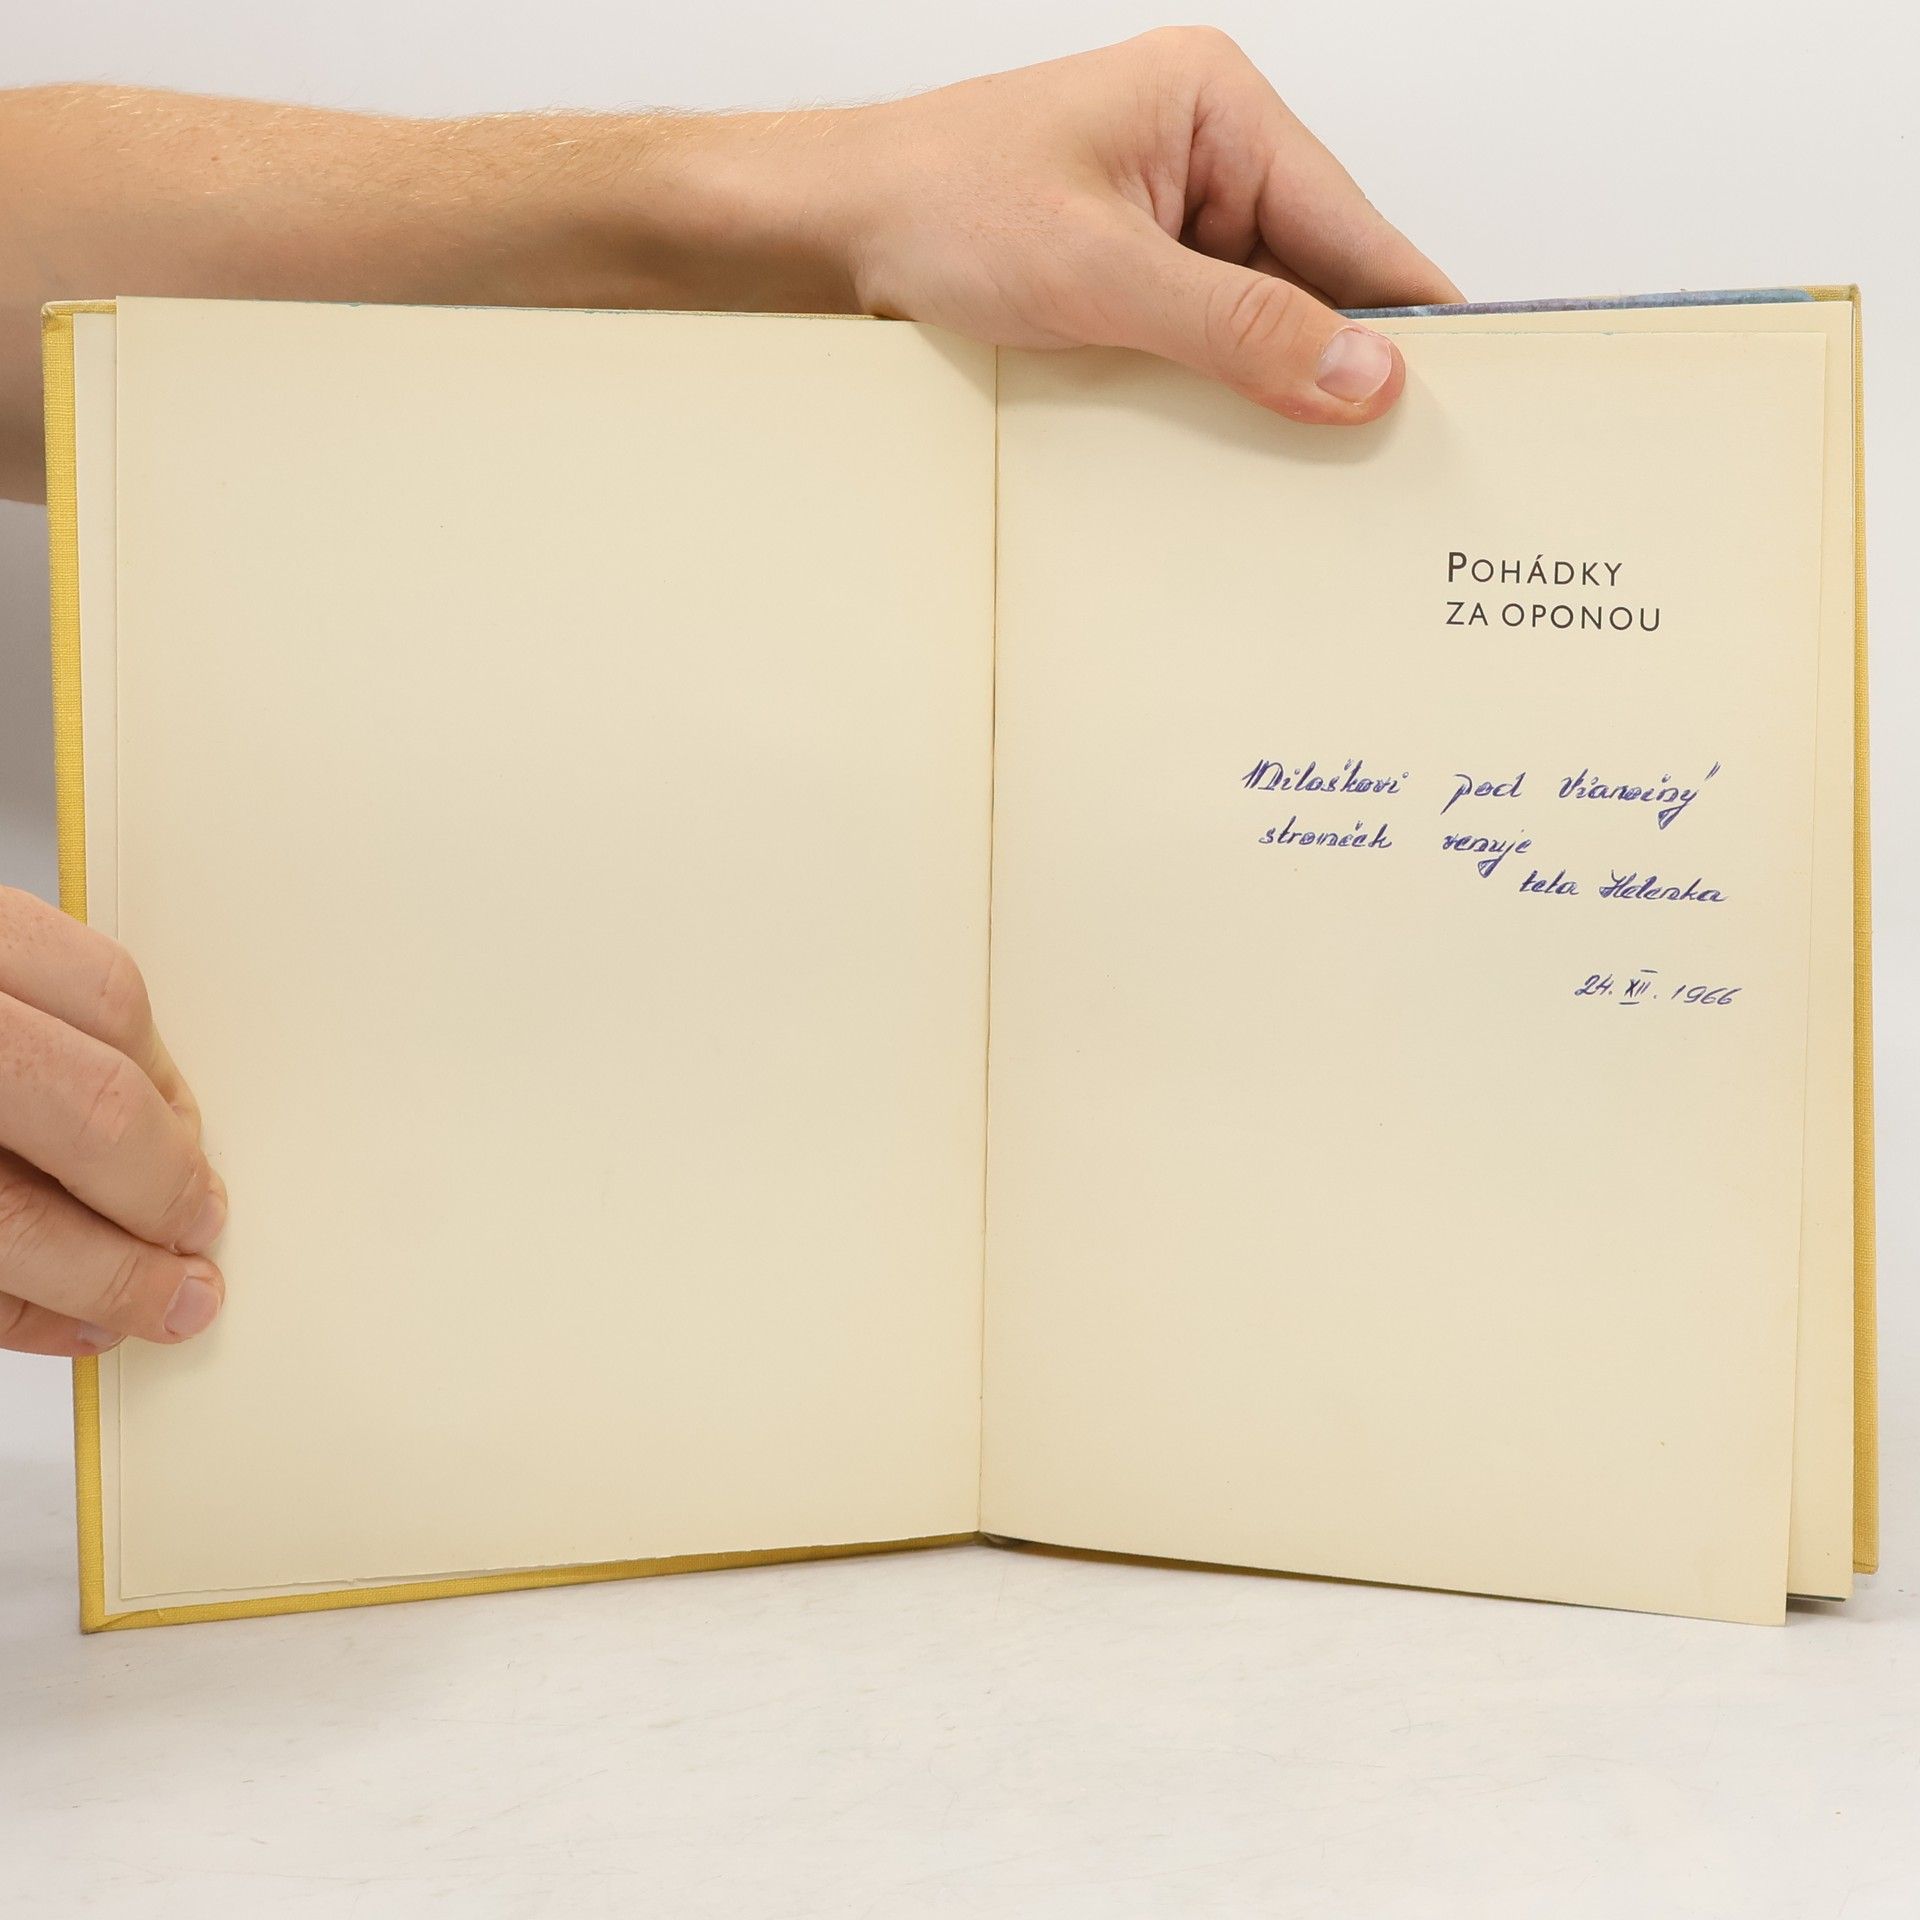 POHÁDKY
ZA OPONOU
Miloškovi pod Vianočný
stromček venuje
teta Helenka
24. XII. 1966